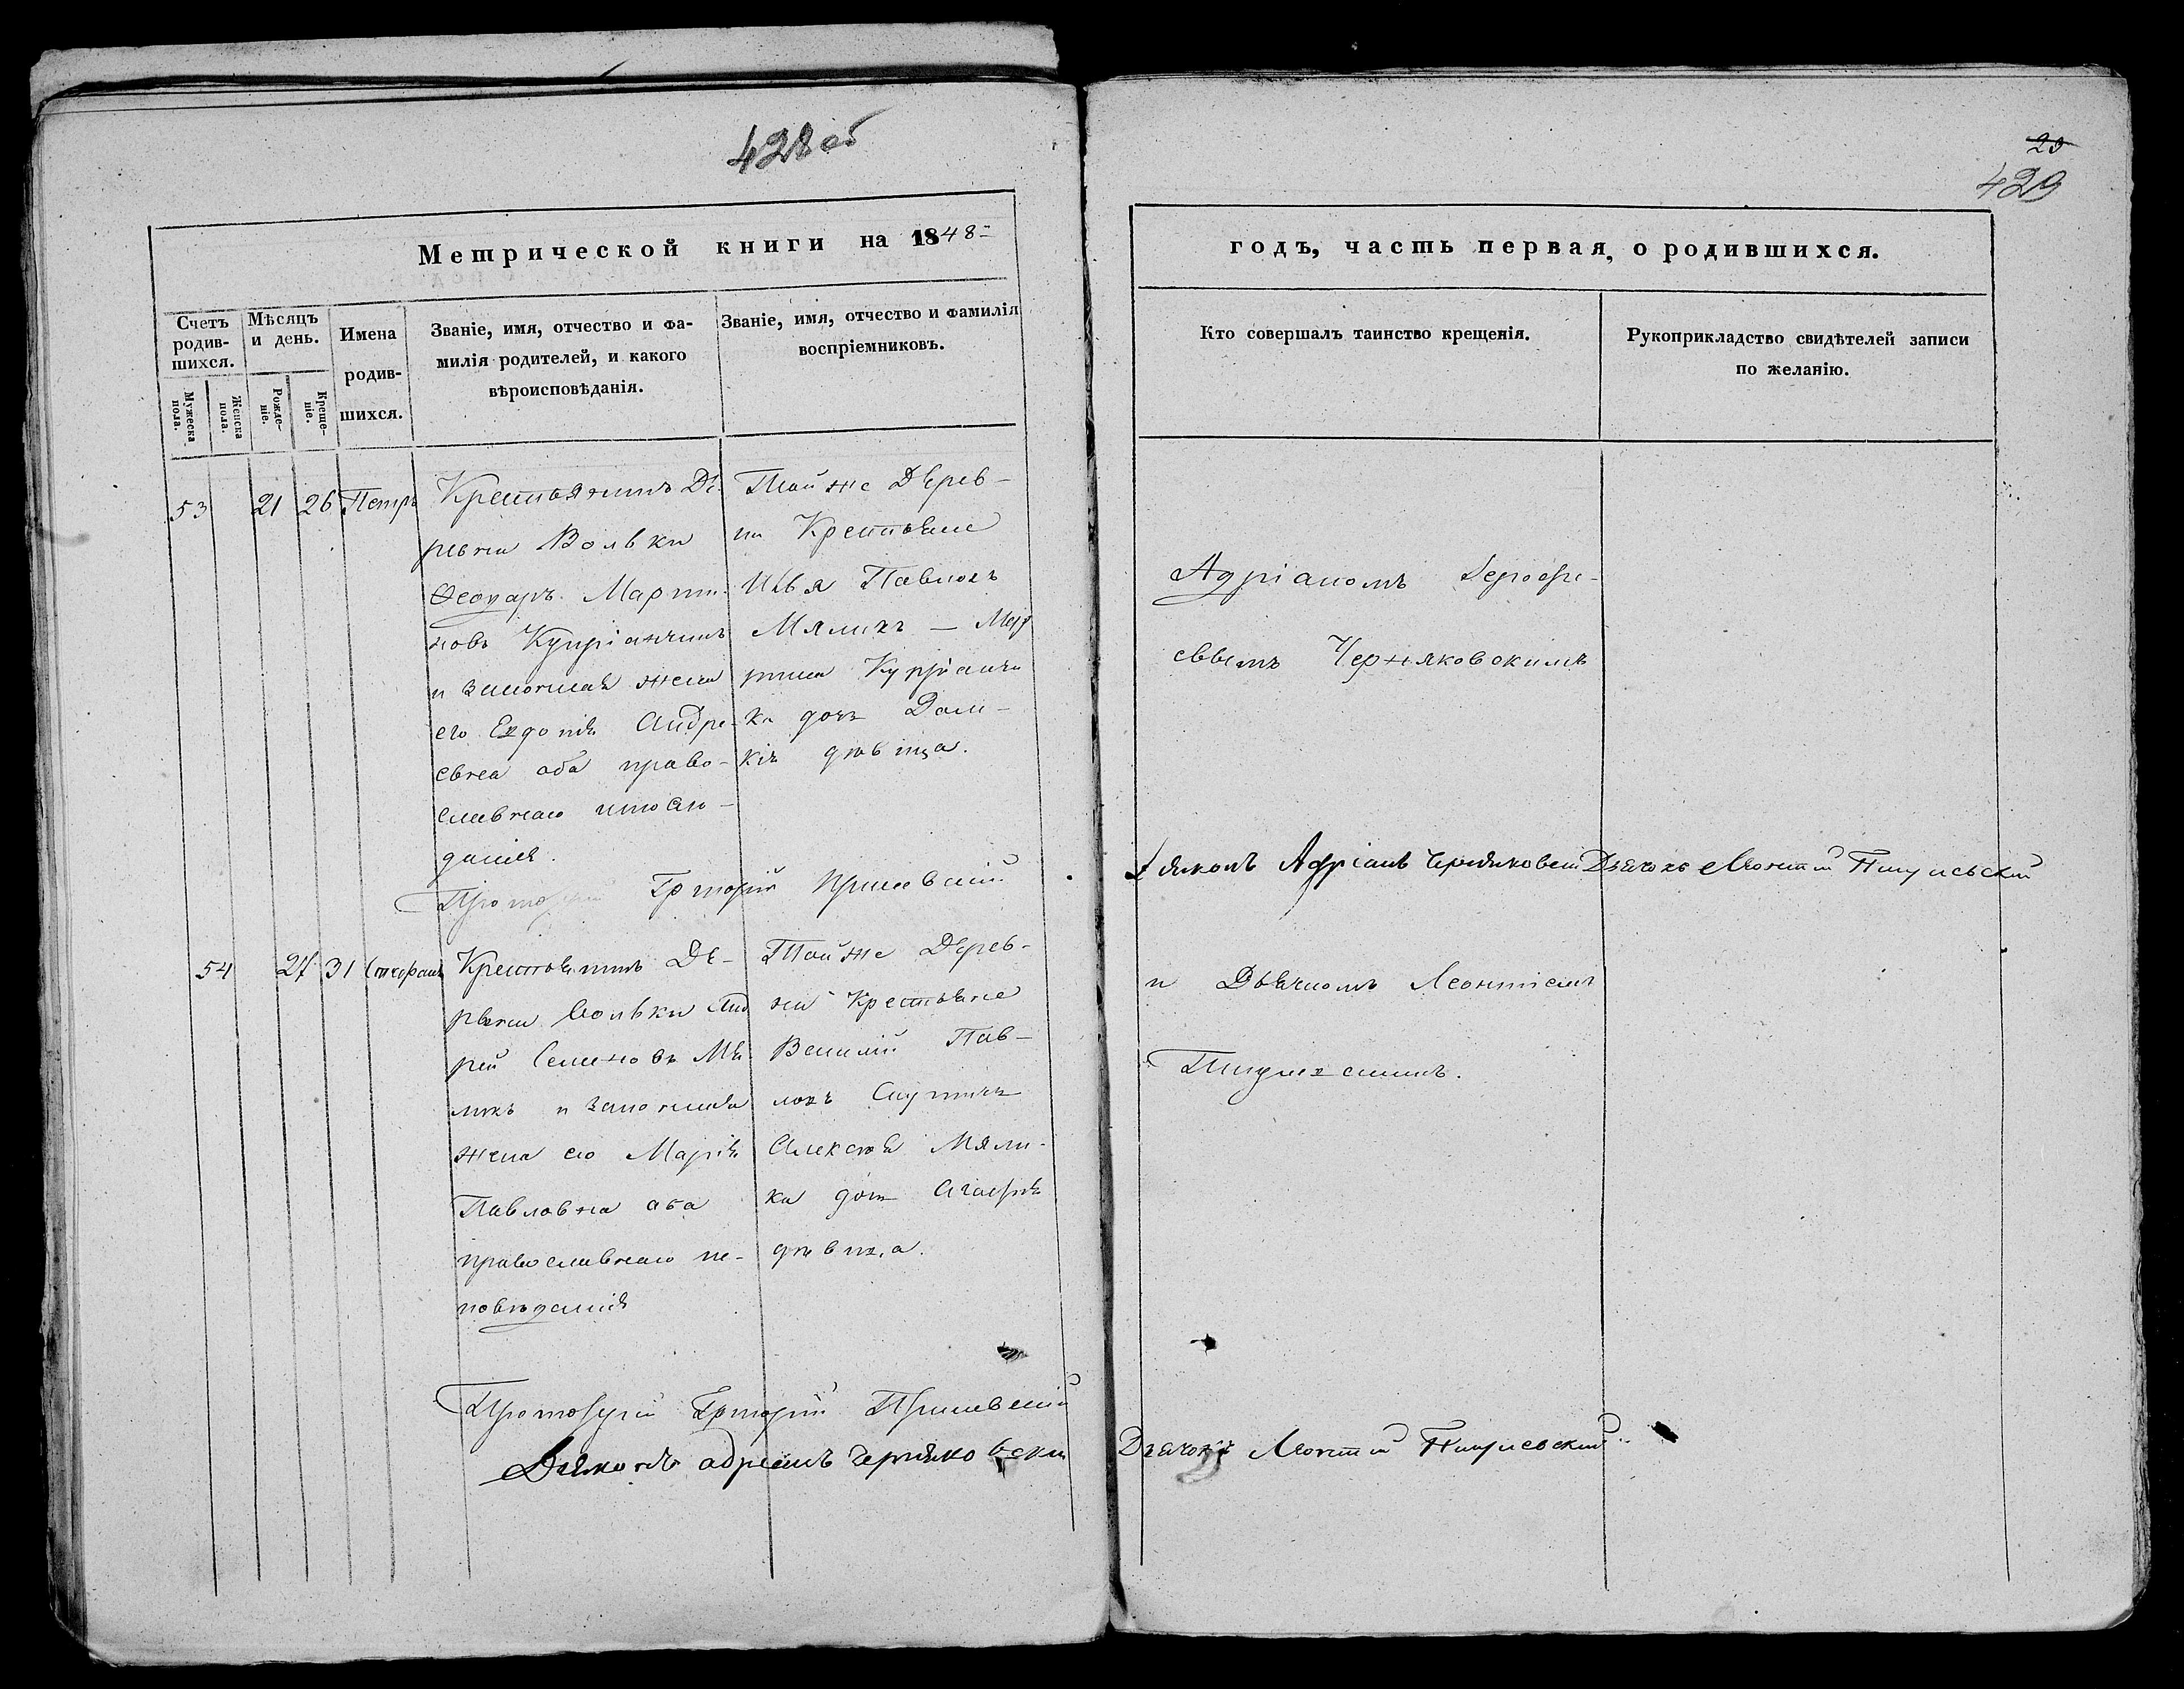 428 об
Метрической книги на 1848
Счетъ родив-шихся.
Мужеска пола.
Женска пола.
Мѣсяцъ и день.
Рожде-ніе.
Креще-ніе.
Имена родив-шихся.
Званіе, имя, отчество и фа-
милія родителей, и какого
вѣроисповѣданія.
Званіе, имя, отчество и фамилія
воспріемниковъ.
53 21 26 Петръ
Крестьянинъ Де-
ревни Вольки
Ѳеодаръ Марти-
новъ Купріянчикъ
и законная жена
его Евдокія Андре-
евна оба право-
славнаго
Той же Дерев-
ни Крестьяне
Илья Павловъ
Мяликъ — Мар
тина Купріанчи
ка дочь
дѣвица.
Протоіерей Григорій
54 27 31 Стефанъ
Крестьянинъ Де-
ревни Вольки Анд
рей Семеновъ Мя-
ликъ и законная
жена его Марія
Павловна оба
православнаго ис-
повѣданія
Той же Дерев-
ни Крестьяне
Василій Пав-
ловъ
Алексѣя Мяли-
ка дочь Агафія
дѣвица.
Протоіерей Григорій
Дьяконъ Адріанъ Черняковски
29
429
годъ, часть первая, о родившихся.
Кто совершалъ таинство крещенія.
Рукоприкладство свидѣтелей записи
по желанію.
Адріаномъ
Черняковскимъ
Дьяконъ Адріанъ Черняковски Дьячокъ Леонтій
и Дьячкомъ Леонтіемъ
Дьячокъ Леонтій